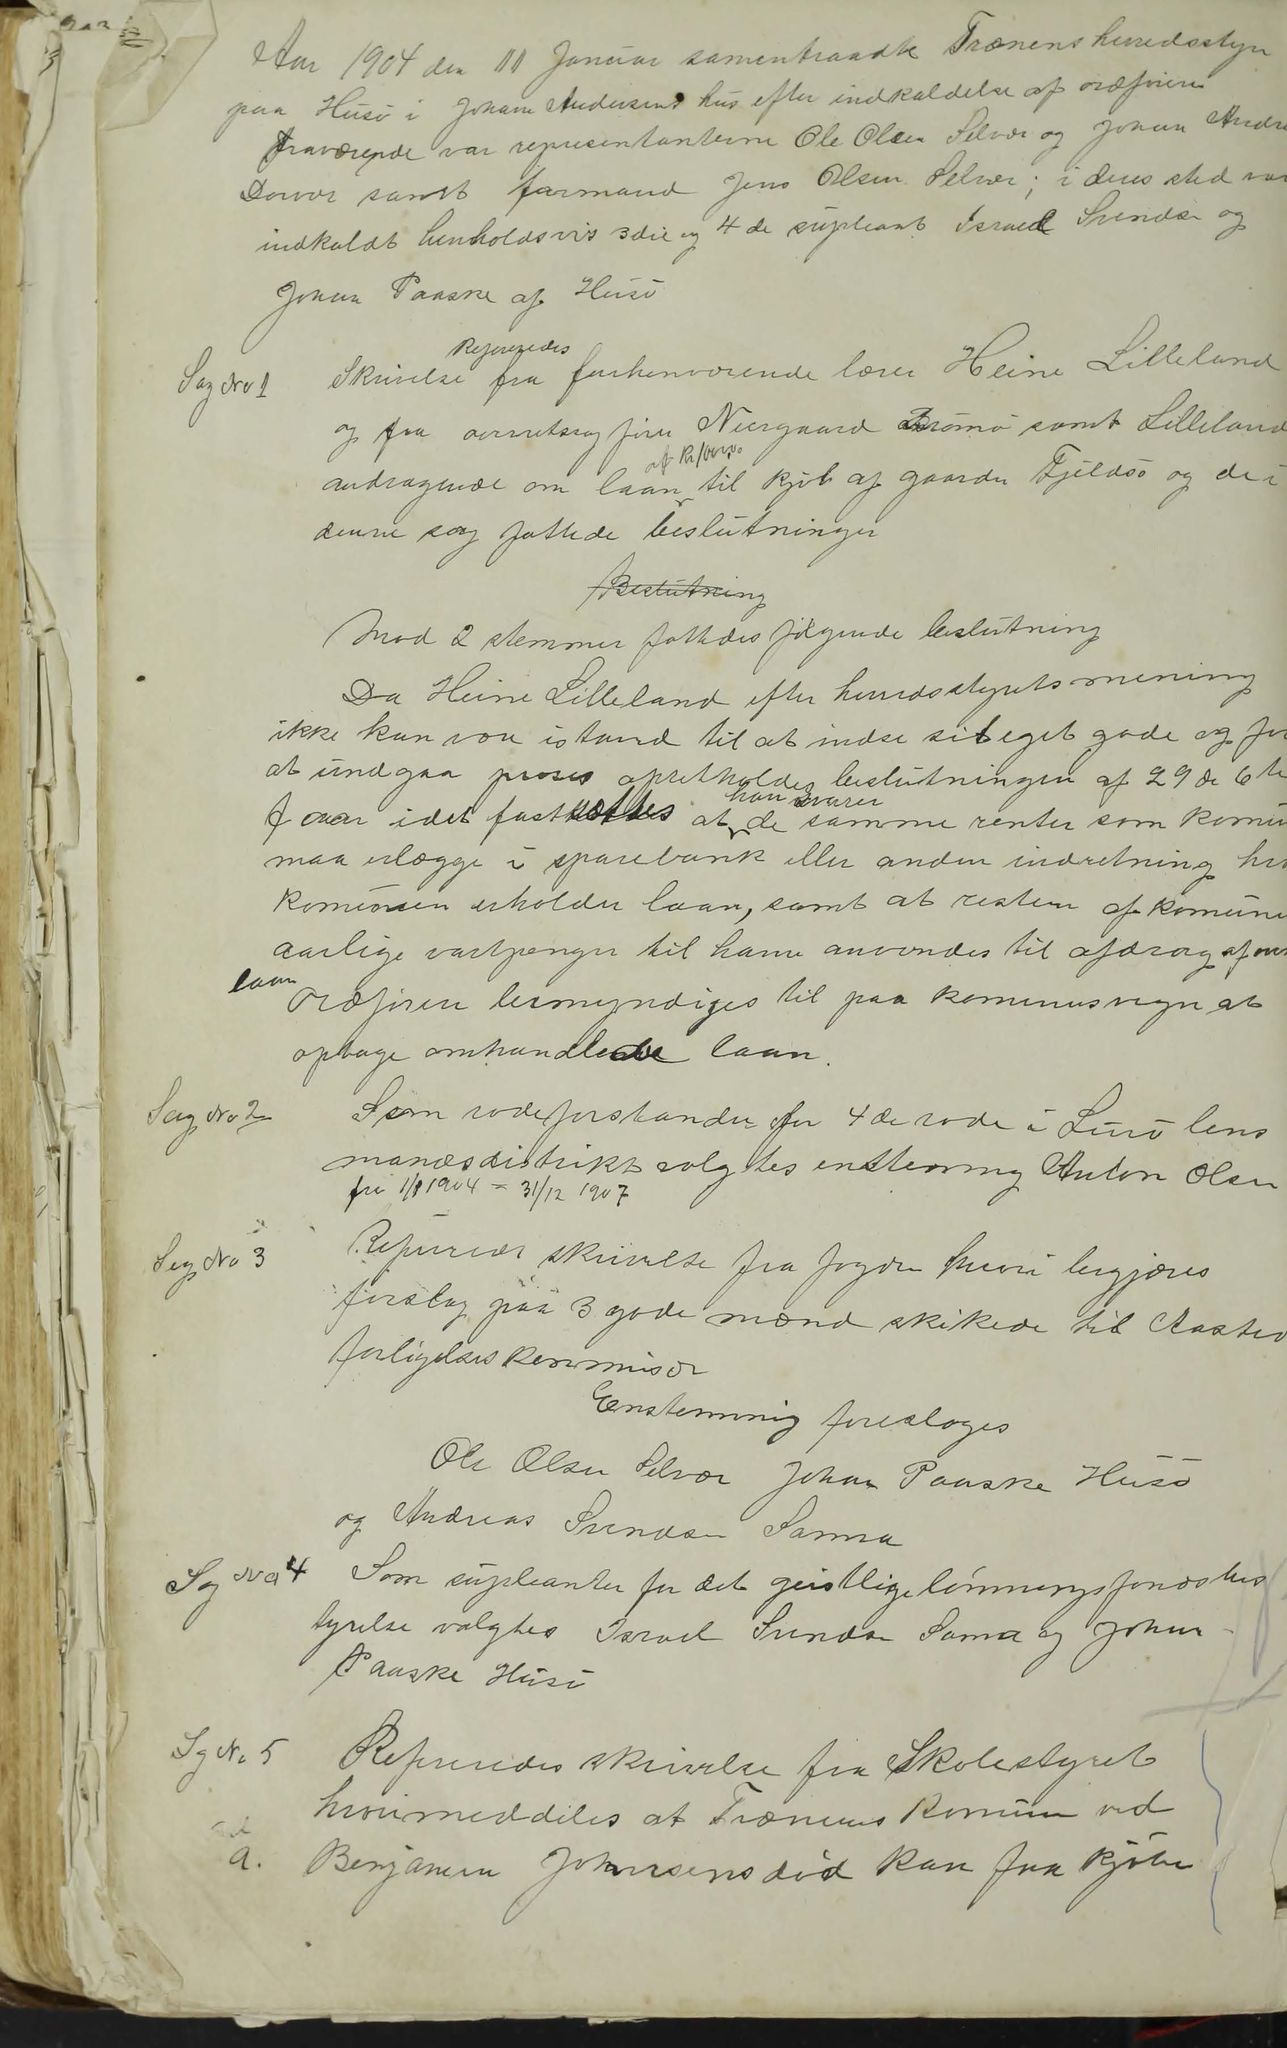 Aar 1904 den 11 Januar samentraadte Trænens heredsstyre
paa Husø i Johan Andersens hus efter indkaldelse af ordføren
Fraværende var representanterne Ole Olsen Selvær og Johan Andr
Dorvær samt formand Jens Olsen Selvær; i deres sted var
indkaldt henholdsvis 3die og 4de supleant Israel Svendsen og
Johan Paaske af Husø
Sag No 1 Refereredes
Skrivelse fra forhenværende lærer Heine Lilleland
og fra overretssagfører Niergaard Tromsø samt Lillelands
andragende om laan af Kr til kjøb af gaarden Fjeldsø og de i
denne sag fattede beslutninger
Beslutning
Mod 2 stemmer fattedes følgende beslutning
Da Heine Lilleland efter herredsstyrets mening
ikke kan være istand til at indse sit eget gode og for
at undgaa proses opretholdes beslutningen af 29de 6te
F aar idet fastsættes at han svarer de samme renter som komun
maa erlægge i sparebank eller anden indretning hvo
komunen erholder laan, samt at resten af komune
aarlige vartpenger til ham anvendes til afdrag af ov
laan
Ordføren bemyndiges til paa komunens vegne at
optage omhandlede laan.
Sag No 2 Som rodeforstander for 4de rode i Lurø lens
mandsdistrikt valgtes enstemmig Anton Olsen
fra 1/1 1904 – 31/12 1907
Sag No 3 Refereredes skrivelse fra fogden hvori begjæres
forslag paa 3 gode mænd skikede til Aasteds
forligelseskommisær
Enstemmig foresloges
Ole Olsen Selvær Johan Paaske Husø
og Andreas Svendsen Sanna
Sag No 4 Som supleanter for det geistlige lønningsfonds bes
tyrelse valgtes Israel Svendsen Sanna og Johan
Paaske Husø
Sag No 5 Refereredes skrivelse fra Skolestyret
hvori meddeles at Trænens Komune ved
a. Benjamin Johnsens død kan faa kjøbe